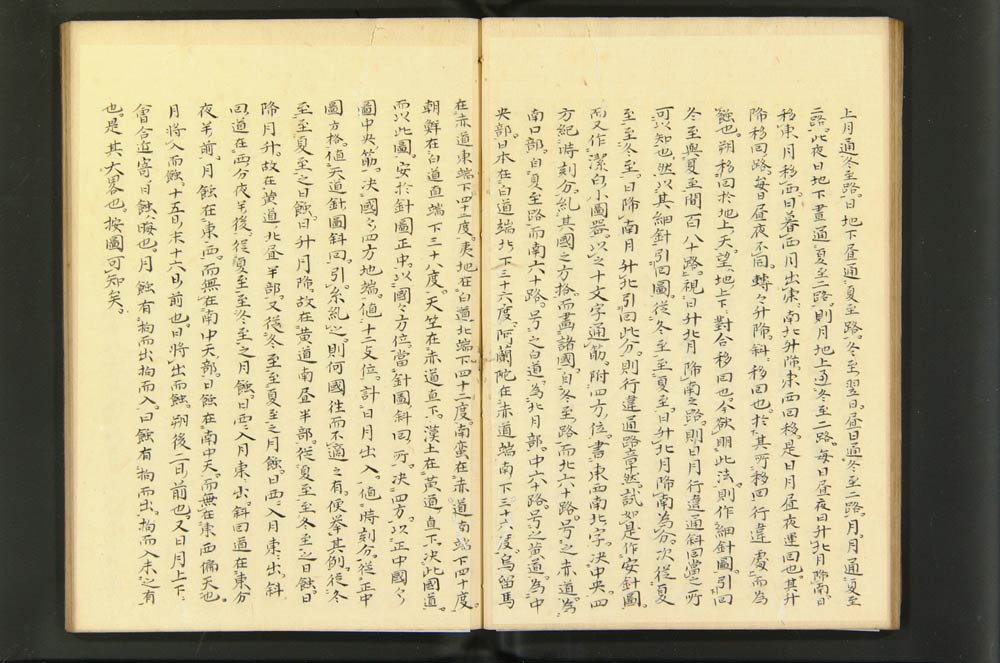 上月通冬至路。日地下昼通夏至路。冬至翌日。昼日通冬至二路。月。月通夏至
二路。此夜日地下畫通夏至二路。則月地上通冬至二路。毎日昼夜日升北月降南。日
移東。月移西。日暮西月出東。南北升降。東西回移。是日月昼夜運回也。其升
降移回路。毎日昼夜不同。轉々升降。斜移回也。於其所移回行違處。而為
蝕也。朔移回於地上。天。望。地上下。對合移回也。今欲明此法。則作細針圖。引回
冬至與夏至間百八十路。視日升北月降南之路。則日月行違通斜回當之所
可以知也。然以其細針引回圖。從冬至至夏至。日升北月降南為分。次從夏
至至冬至。日降南月升北引回此分。則行違通路章然。試如是作安針圖。
而又作潔白小圖器。以之十文字通筋。附四方位。書東西南北字。決中央。四
方紀時刻分。糺其國之方格。而畫諸國。自冬至路而北六十路。号之赤道。為
南口部。自夏至路而南六十路。号之白道。為北月部。中六十路。号之黄道。為中
央部。日本在白道端北下三十六度。阿蘭陀在赤道端南下三十六度。烏留馬
在赤道東端下四十二度。夷地在白道北端下四十二度。南蛮在赤道南端下四十度。
朝鮮在白道直端下三十八度。天竺在赤道直下。漢土在黄道直下。決此國道。
而以此圖。安於針圖正中。以國々方位。當針圖斜回所。決四方。以正中國々
圖中央筋。決國々四方地端。値十二支位。計日月出入。値時刻分。從正中
圖方格。値天道針圖斜回。引糸糺之。則何國往而不適之有。俟挙其例。從冬
至至夏至之日蝕。日升月降。故在黄道南昼半部。從夏至至冬至之日蝕。日
降月升。故在黄道北昼半部。又從冬至至夏至之月蝕。日西入月東出。斜
回道在西分夜半後。從夏至至冬至之月蝕。日西入月東出。斜回道在東分
夜半前。月蝕在東西。而無在南中天部。日蝕在南中天。而無在東西偏天也。
月將入而蝕。十五日。末十六日前也。日將出而蝕。朔後二日前也。又日月上下。
會合近寄。日蝕晦也。月蝕有拘而出。拘而入。日蝕有拘而出。拘而入。未之有
也。是其大畧也。按圖可知矣。